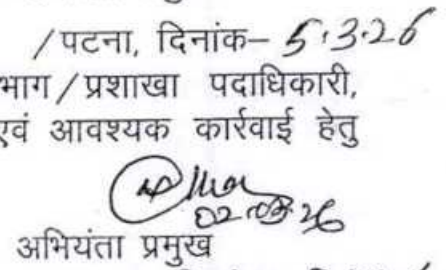 /पटना, दिनांक– 5.3.26
भाग/प्रशाखा पदाधिकारी,
एवं आवश्यक कार्रवाई हेतु
02-03-26
अभियंता प्रमुख